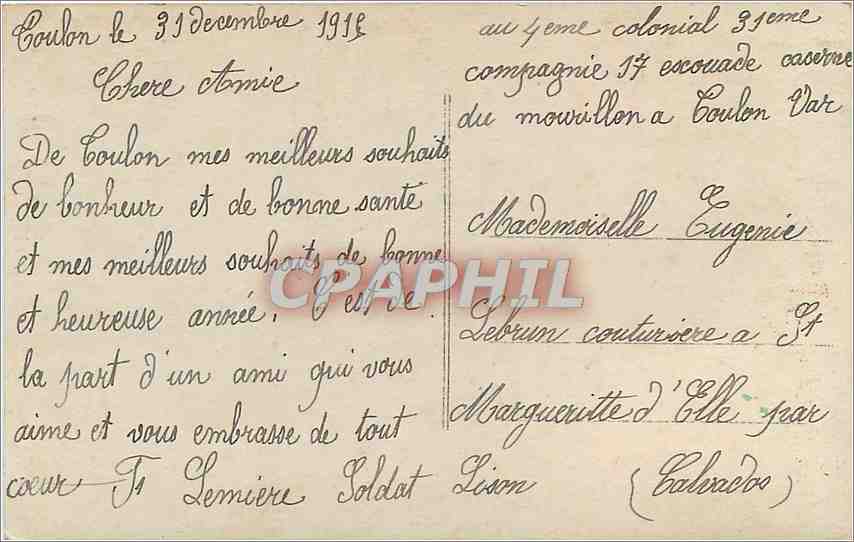 Toulon le 31 decembre 191
Chere Amie
De Toulon mes meilleurs souhaits
de bonheur et de bonne santé
et mes meilleurs souhaits de bonne
et heureuse année. C'est de
la part d'un ami qui vous
aime et vous embrasse de tout
coeur Lemiere Soldat
au 4eme colonial 31eme
compagnie 17 escouade caserne
du mourillon a Toulon Var
Mademoiselle Eugenie
Lebrun couturiere a St
Margueritte d'Elle par
Lison (Calvados)
CPAPHIL